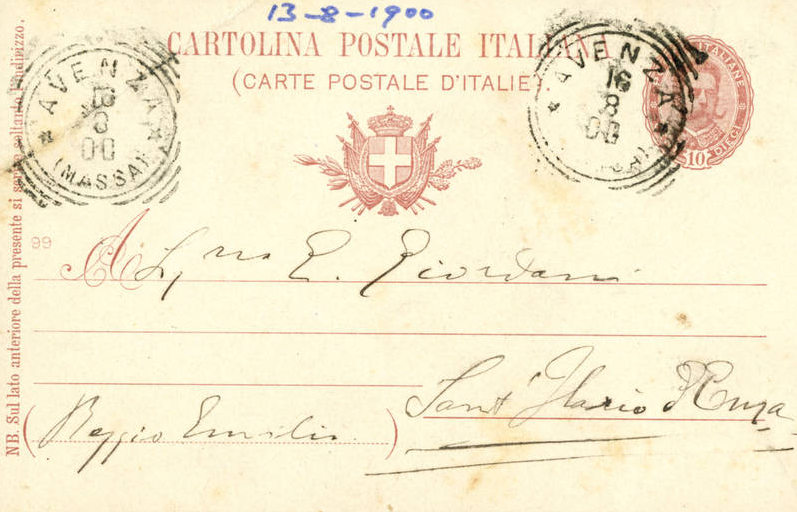 13-8-1900
CARTOLINA POSTALE ITALIANA
(CARTE POSTALE D'ITALIE)
AVENZA
16
8
00
(MASSA)
AVENZA
16
8
00
ITALIANE
10 DIECI
99
A E. Giordani
Sant'Ilario d'Enza
(Reggio Emilia)
NB. Sul lato anteriore della presente si scrive soltanto l'indirizzo.